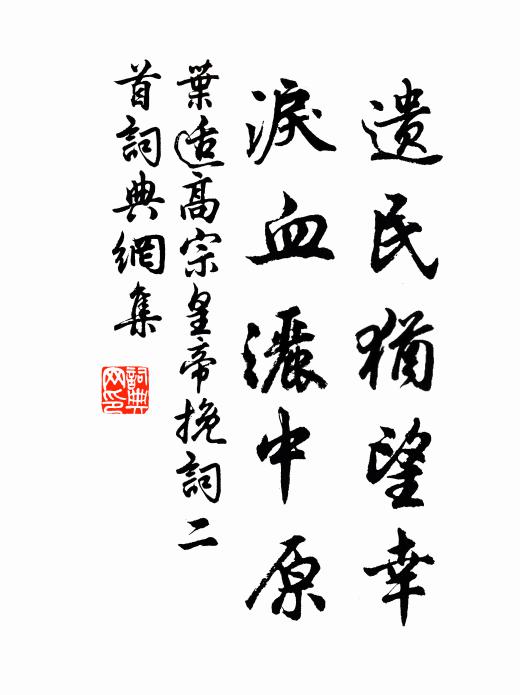 遗民犹望幸
淚血灑中原
葉适高宗皇帝挽詞二
首詞典網集
詞典网印